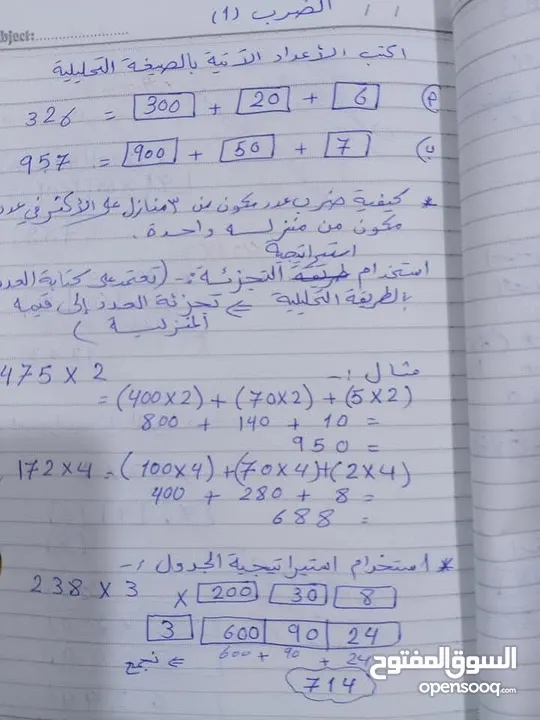 bject:
/ /
الضرب (1)
اكتب الأعداد الآتية بالصيغة التحليلية
326 = 300 + 20 + 6 (P
957 = 900 + 50 + 7 (ب
* كيفية ضرب عدد مكون من ٣ منازل على الأكثر في عدد
مكون من منزلة واحدة.
استراتيجية
استخدام طريقة التجزئة :- (تعتمد على كتابة العدد
بالطريقة التحليلية => تجزئة العدد إلى قيمه
المنزلية)
مثال :-
475 x 2
= (400x2) + (70x2) + (5x2)
800 + 140 + 10 =
950 =
172x4 = (100x4) + (70x4)+(2x4)
400 + 280 + 8 =
688 =
* استخدام استراتيجية الجدول :-
238 x 3
x 200 30 8
3 600 90 24
600 + 90 + 24 => نجمع
714
السوق المفتوح
opensooq.com